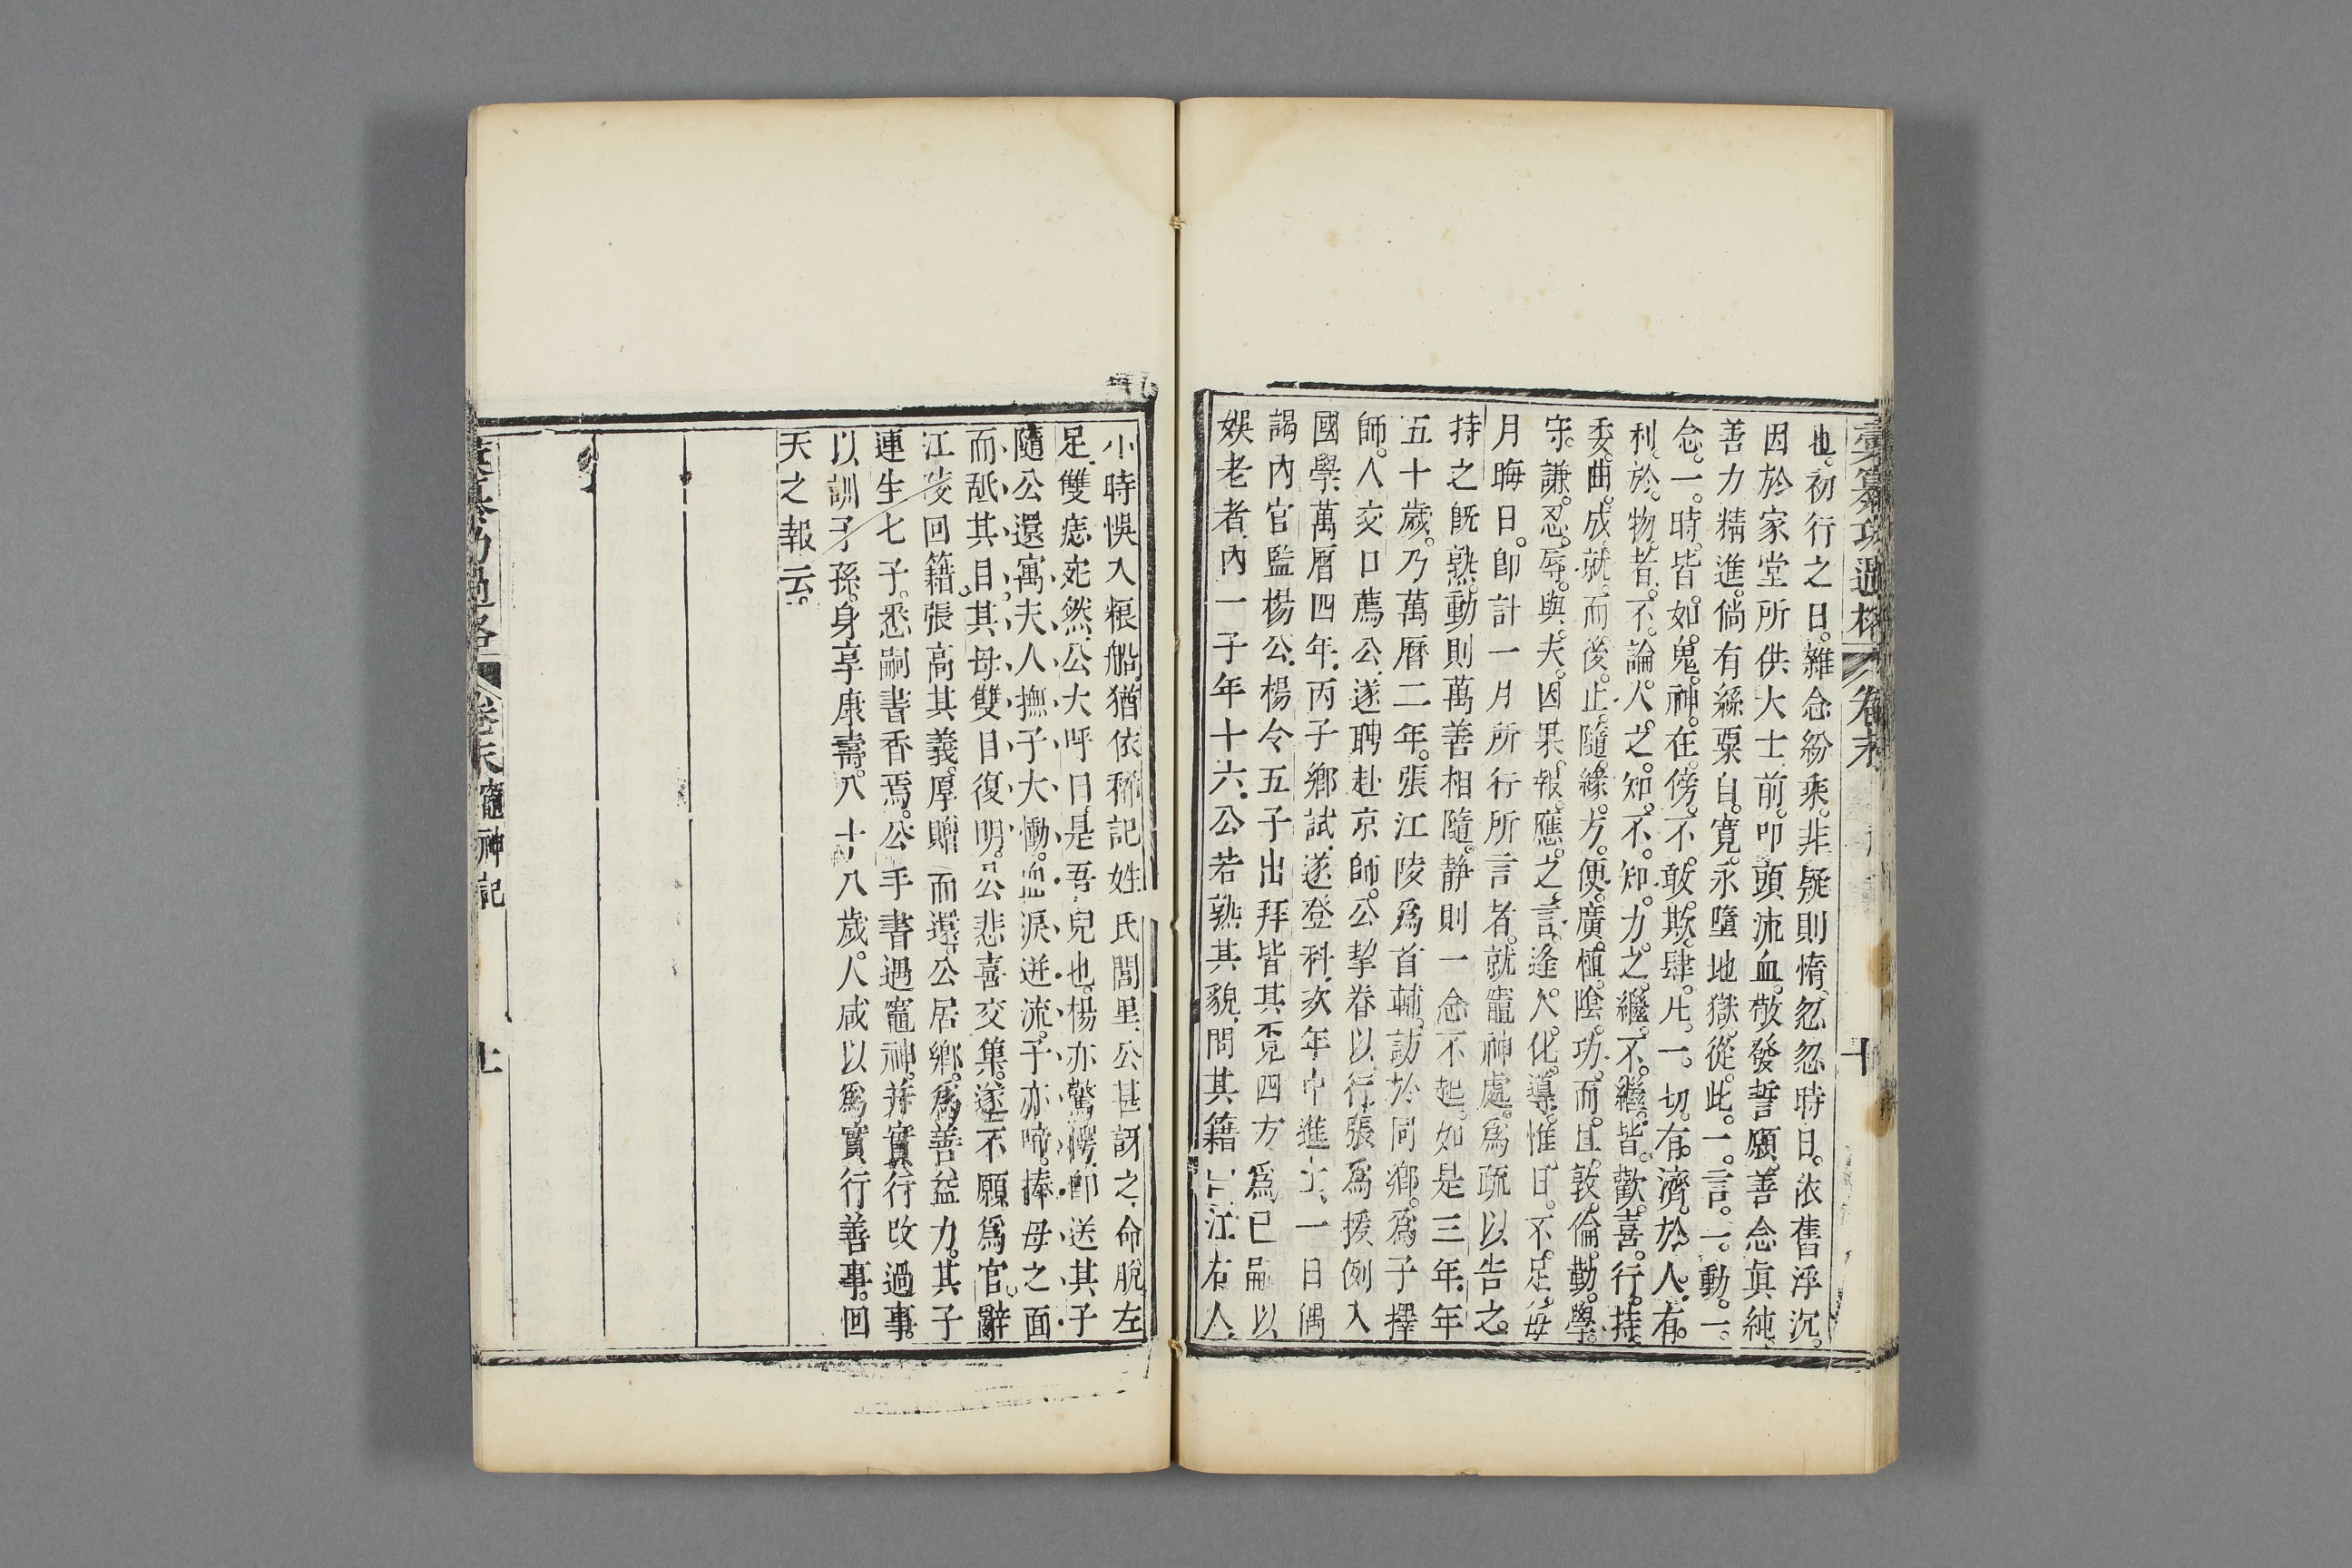 彙纂功過格 卷末 十
也。初行之日。雜念紛乘。非疑則惰。忽忽時日。依舊浮沉。
因於家堂所供大士前。叩頭流血。敬發誓願。善念眞純、
善力精進。倘有絲粟自寛。永墮地獄。從此。一言。一動。一
念。一時。皆如鬼神在傍。不敢欺肆。凡一切有濟於人。有
利於物者。不論人之知不知。力之繼不繼。皆歡喜行持。
委曲成就。而後止。隨緣方便。廣植陰功。而且敦倫勤學。
守謙忍辱。與夫因果報應之言。逢人化導。惟日不足。毎
月晦日。卽計一月所行所言者。就竈神處。爲疏以告之。
持之旣熟。動則萬善相隨。静則一念不起。如是三年。年
五十歲。乃萬曆二年。張江陵爲首輔。訪於同鄉。爲子擇
師。人交口薦公。遂聘赴京師。公挈眷以行。張爲援例入
國學。萬曆四年。丙子鄉試。遂登科。次年中進士。一日偶
謁內官監楊公。楊令五子出拜皆其覓四方爲已嗣以
娛老者。內一子年十六。公若熟其貌。問其籍曰江右人。
小時悞入粮船。猶依稀記姓氏閭里。公甚訝之。命脫左
足。雙痣宛然。公大呼曰是吾兒也。楊亦驚愕。卽送其子
隨公還寓。夫人撫子大慟。血淚迸流。子亦啼。捧母之面
而舐其目。其母雙目復明。公悲喜交集。遂不願爲官。辭
江陵回籍。張高其義。厚贈而還。公居鄉。爲善益力。其子
連生七子。悉嗣書香焉。公手書遇竈神。并實行改過事。
以訓子孫。身享康壽。八十八歲。人咸以爲實行善事。回
天之報云。
彙纂功過格 卷末 竈神記 十一